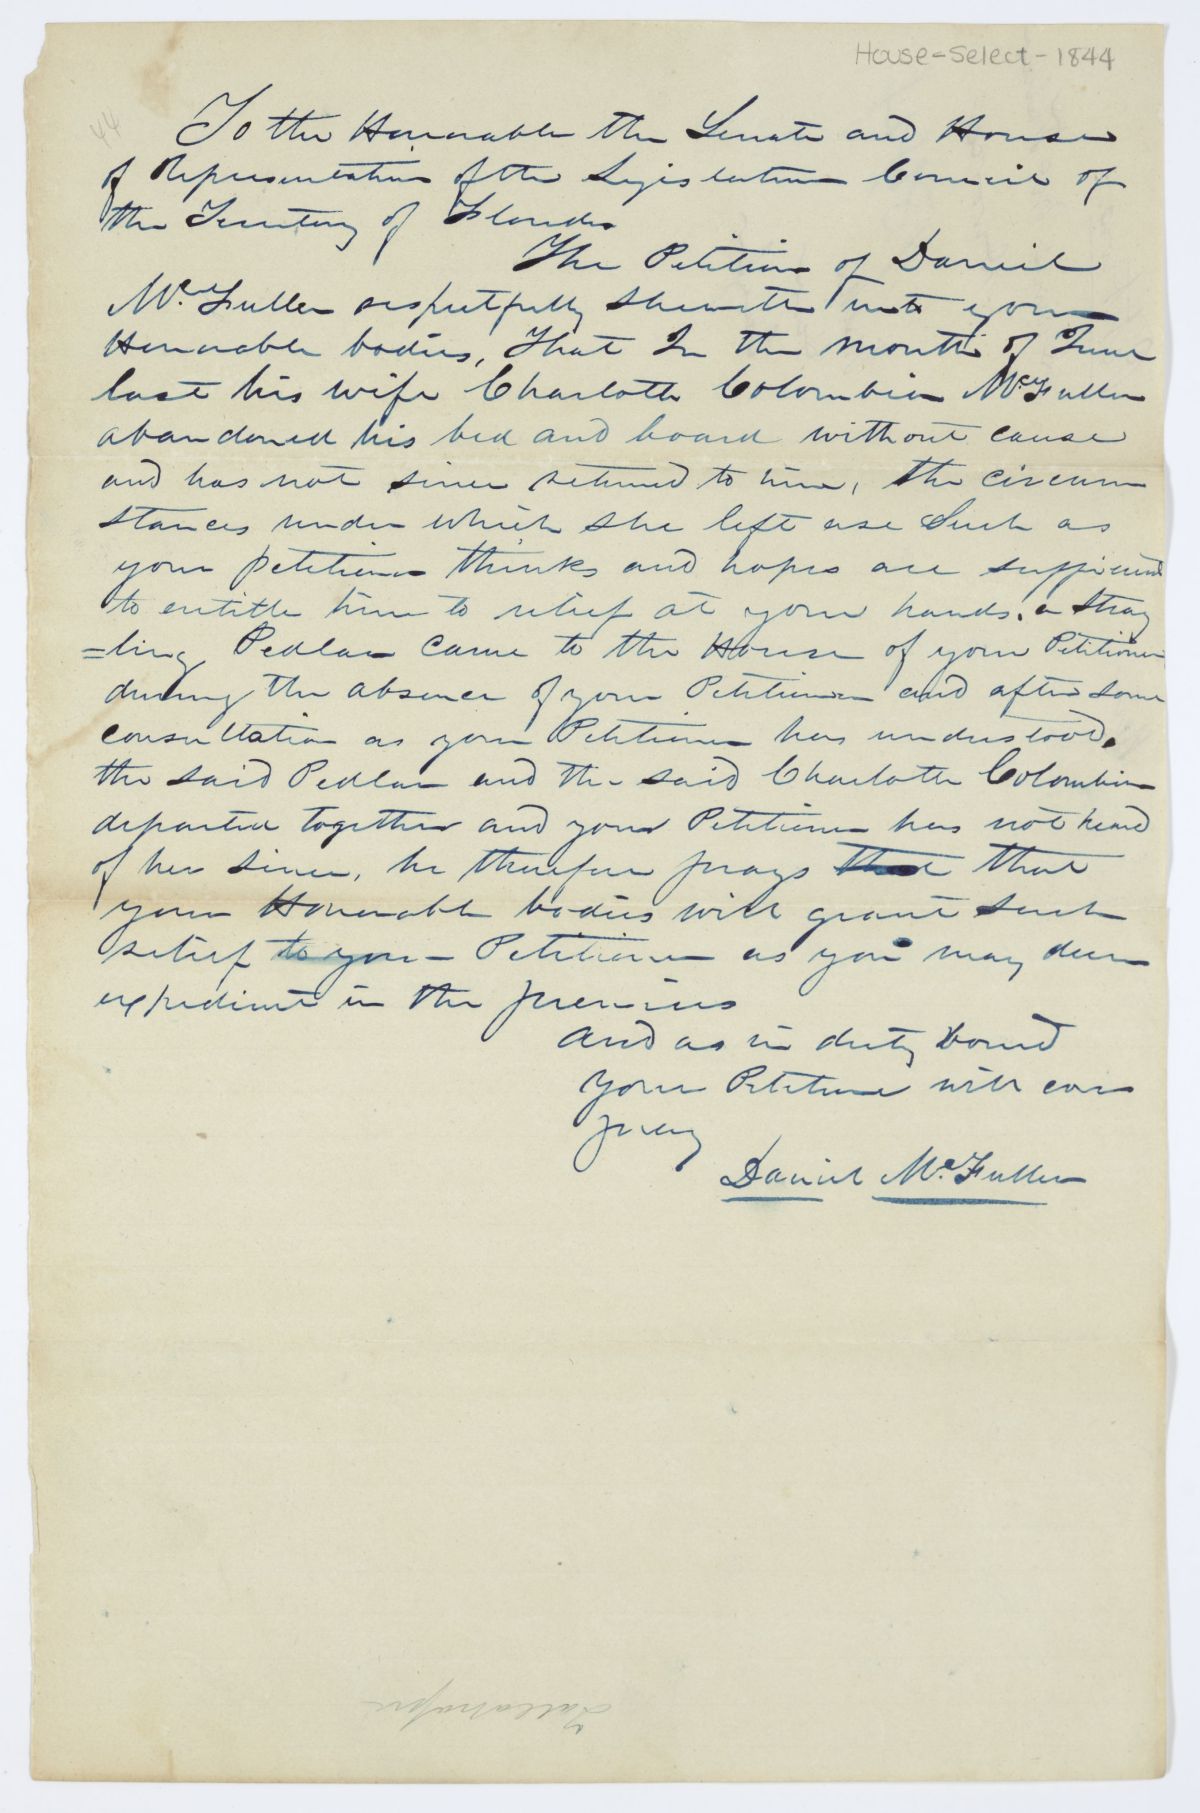 House-Select-1844
44
To the Honorable the Senate and House
of Representatives of the Legislative Council of
the Territory of Florida
The Petition of Daniel
Mc.Fuller respectfully sheweth unto your
Honorable bodies, That In the month of June
last his wife Charlotte Colombia Mc.Fuller
abandoned his bed and board without cause
and has not since returned to him, the circum
stances under which she left are Such as
your petitioner thinks and hopes are sufficient
to entitle him to relief at your hands. a Strag
=ling Pedlar came to the House of your Petitioner
during the absence of your Petitioner and after some
consultation as your Petitioner has understood,
the said Pedlar and the said Charlotte Colombia
departed together and your Petitioner has not heard
of her since, he therefore prays that that
your Honorable bodies will grant such
relief to your Petitioner as you may deem
expedient in the premises
And as in duty bound
your Petitioner will ever
pray
Daniel Mc.Fuller
Tallahassee